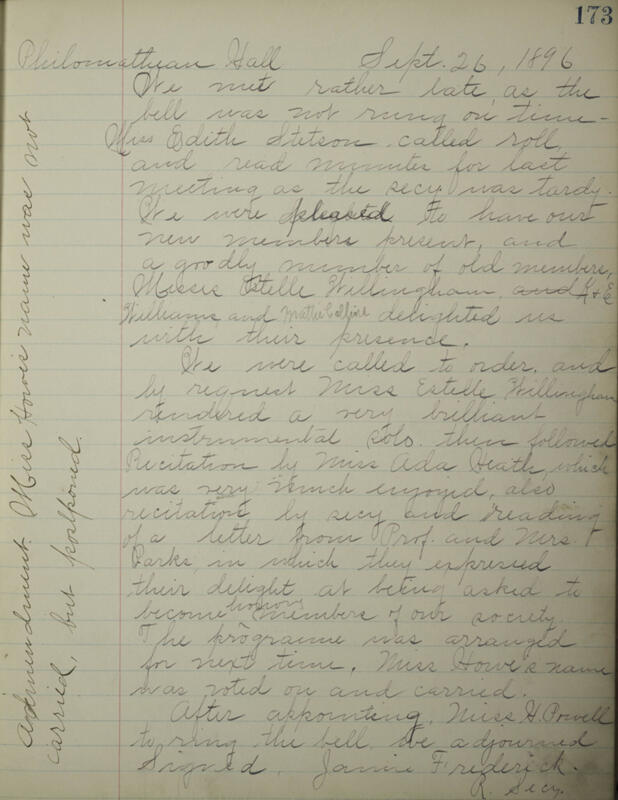 173
Philomathean Hall Sept. 26, 1896
We met rather late, as the
bell was not rung on time -
Miss Edith Stetson called roll,
and read minutes for last
meeting as the secy. was tardy.
We were pleased to have our
new members present, and
a goodly number of old members,
Misses Estelle Willingham, and K + E
Williams, and Mattie delighted us
with their presence.
We were called to order, and
by request Miss Estelle Willingham
rendered a very brilliant
instrumental solo. then followed
Recitation by Miss Ada Heath, which
was very much enjoyed, also
recitation by secy and reading
of a letter from Prof. and Mrs.
Parks, in which they expressed
their delight at being asked to
become honorary members of our society.
The programme was arranged
for next time. Miss Howe's name
was voted on and carried.
After appointing, Miss H. Powell
to ring the bell, we adjourned
Signed. Janie Frederick.
R. Secy.
Admendment. Miss Howe's name was not
carried, but postponed.